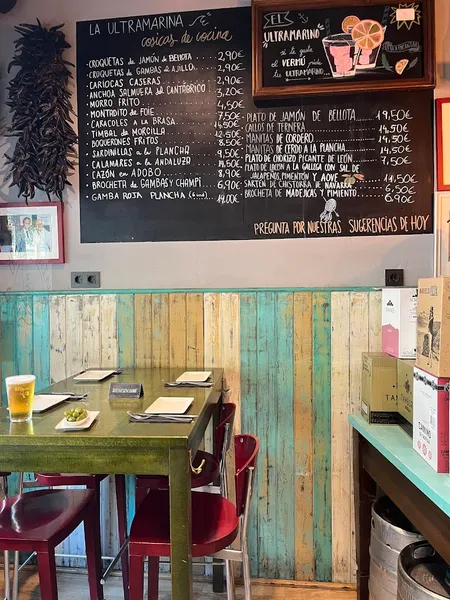 LA ULTRAMARINA
cosicas de cocina
CROQUETAS DE JAMÓN DE BELLOTA 2,90€
CROQUETAS DE GAMBAS AJILLO 2,90€
CARIOCAS CASERAS 2,90€
ANCHOA SALMUERA DEL CANTÁBRICO 3,20€
MORRO FRITO 4,50€
MONTADITO DE FOIE 7,50€
CARACOLES A LA BRASA
TIMBAL DE MORCILLA
BOQUERONES FRITOS
SARDINILLAS a la PLANCHA 9,50€
CALAMARES a la ANDALUZA
CAZÓN EN ADOBO 8,90€
BROCHETA DE GAMBAS Y CHAMPI 6,90€
GAMBA ROJA PLANCHA 14,00€
PLATO DE JAMÓN DE BELLOTA 19,50€
CALLOS DE TERNERA 14,50€
MANITAS DE CORDERO 14,50€
MANITAS DE CERDO A LA PLANCHA 14,50€
PLATO DE CHORIZO PICANTE DE LEÓN 7,50€
PLATO DE LACÓN A LA GALLEGA CON SAL DE
JALAPEÑOS, PIMENTÓN Y AOVE 14,50€
SARTÉN DE CHISTORRA DE NAVARRA 6,50€
BROCHETA DE MADEJICAS Y PIMIENTO 6,90€
PREGUNTA POR NUESTRAS SUGERENCIAS DE HOY
SEL
ULTRAMARINO
si te gusta
el VERMÚ pide
tu ULTRAMARINO